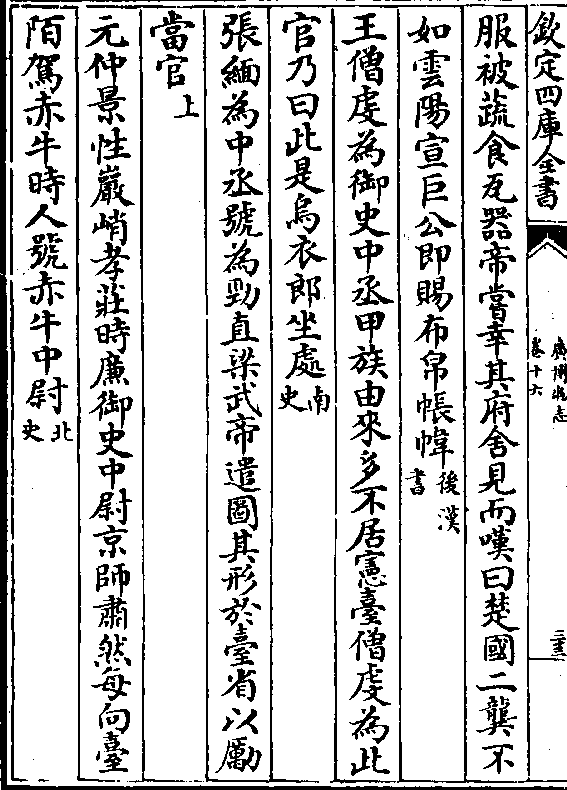 欽定四庫全書
廣博物志
卷十六
三三
服被蔬食瓦器帝嘗幸其府舍見而嘆曰楚國二龔不
如雲陽宣巨公即賜布帛帳幃後漢書
王僧虔為御史中丞甲族由來多不居憲臺僧虔為此
官乃曰此是烏衣郎坐處南史
張緬為中丞號為勁直梁武帝遣圖其形於臺省以勵
當官上
元仲景性嚴峭孝莊時廉御史中尉京師肅然每向臺
陌駕赤牛時人號赤牛中尉北史